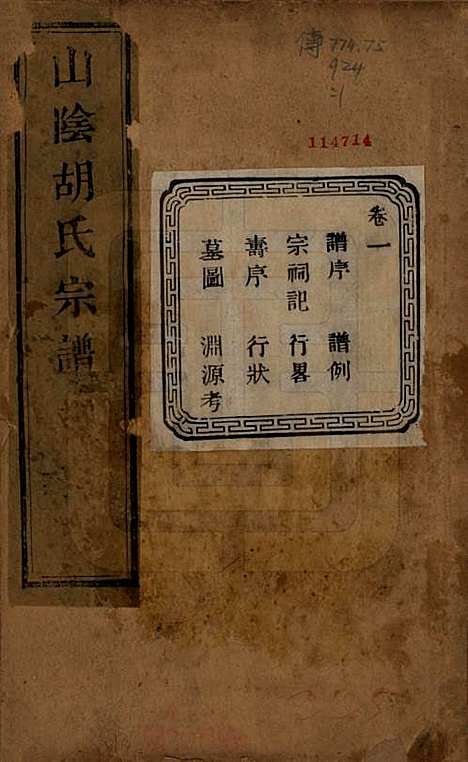 山陰胡氏宗譜
傳 774.75
924
:1
114714
卷一
譜序 譜例
宗祠記 行畧
壽序 行狀
墓圖 淵源考